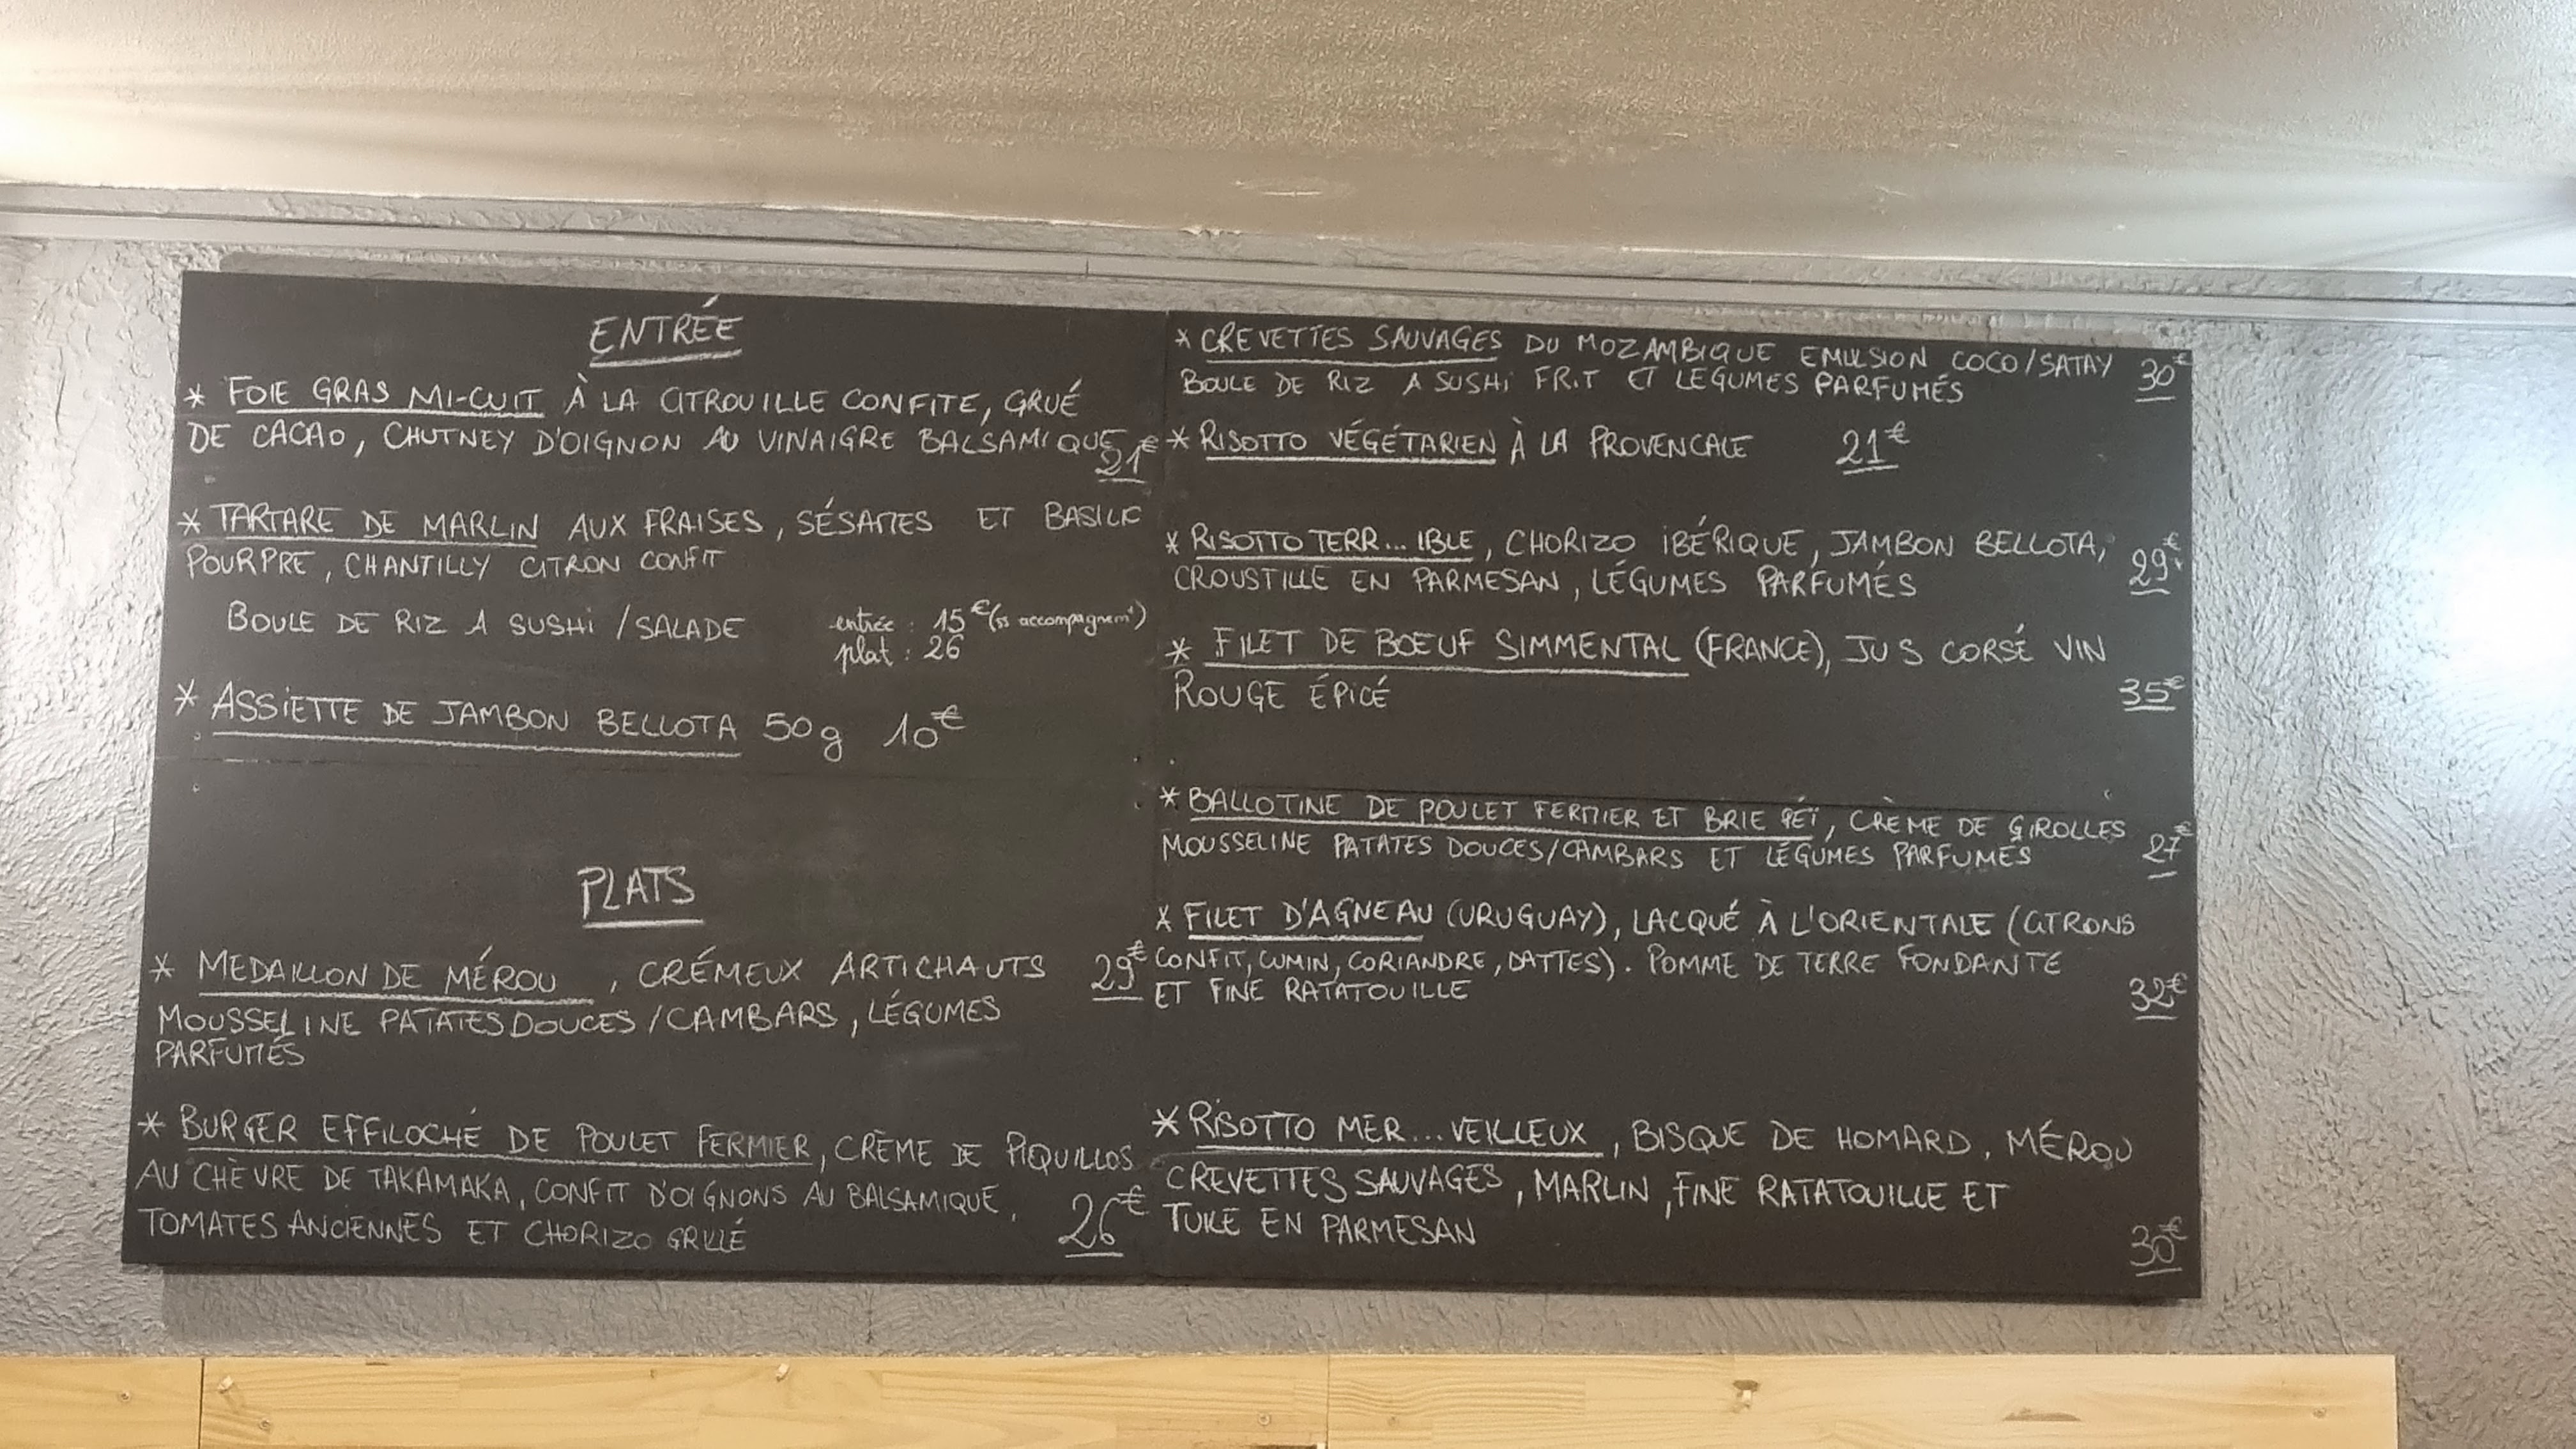 ENTRÉE
* FOIE GRAS MI-CUIT À LA CITROUILLE CONFITE, GRUÉ
DE CACAO, CHUTNEY D'OIGNON AU VINAIGRE BALSAMIQUE
21€
* TARTARE DE MARLIN AUX FRAISES, SÉSAMES ET BASILIC
POURPRE, CHANTILLY CITRON CONFIT
BOULE DE RIZ A SUSHI / SALADE
entrée : 15€ (ss accompagnemt)
plat : 26
* ASSIETTE DE JAMBON BELLOTA 50g 10€
PLATS
* MEDAILLON DE MÉROU , CRÉMEUX ARTICHAUTS 29€
MOUSSELINE PATATES DOUCES / CAMBARS , LÉGUMES
PARFUMÉS
* BURGER EFFILOCHÉ DE POULET FERMIER, CRÈME DE PIQUILLOS
AU CHÈVRE DE TAKAMAKA, CONFIT D'OIGNONS AU BALSAMIQUE,
TOMATES ANCIENNES ET CHORIZO GRILLÉ 26€
* CREVETTES SAUVAGES DU MOZAMBIQUE EMULSION COCO/SATAY 30€
BOULE DE RIZ A SUSHI FRIT ET LEGUMES PARFUMÉS
* RISOTTO VÉGÉTARIEN À LA PROVENCALE 21€
* RISOTTO TERR... IBLE, CHORIZO IBÉRIQUE, JAMBON BELLOTA, 29€
CROUSTILLE EN PARMESAN, LÉGUMES PARFUMÉS
* FILET DE BOEUF SIMMENTAL (FRANCE), JUS CORSÉ VIN
ROUGE ÉPICÉ 35€
* BALLOTINE DE POULET FERMIER ET BRIE PÉÏ, CRÈME DE GIROLLES
MOUSSELINE PATATES DOUCES/CAMBARS ET LÉGUMES PARFUMÉS 27€
* FILET D'AGNEAU (URUGUAY), LACQUÉ À L'ORIENTALE (CITRONS
CONFIT, CUMIN, CORIANDRE, DATTES). POMME DE TERRE FONDANTE
ET FINE RATATOUILLE 32€
* RISOTTO MER...VEILLEUX, BISQUE DE HOMARD, MÉROU
CREVETTES SAUVAGES, MARLIN, FINE RATATOUILLE ET
TUILE EN PARMESAN 30€